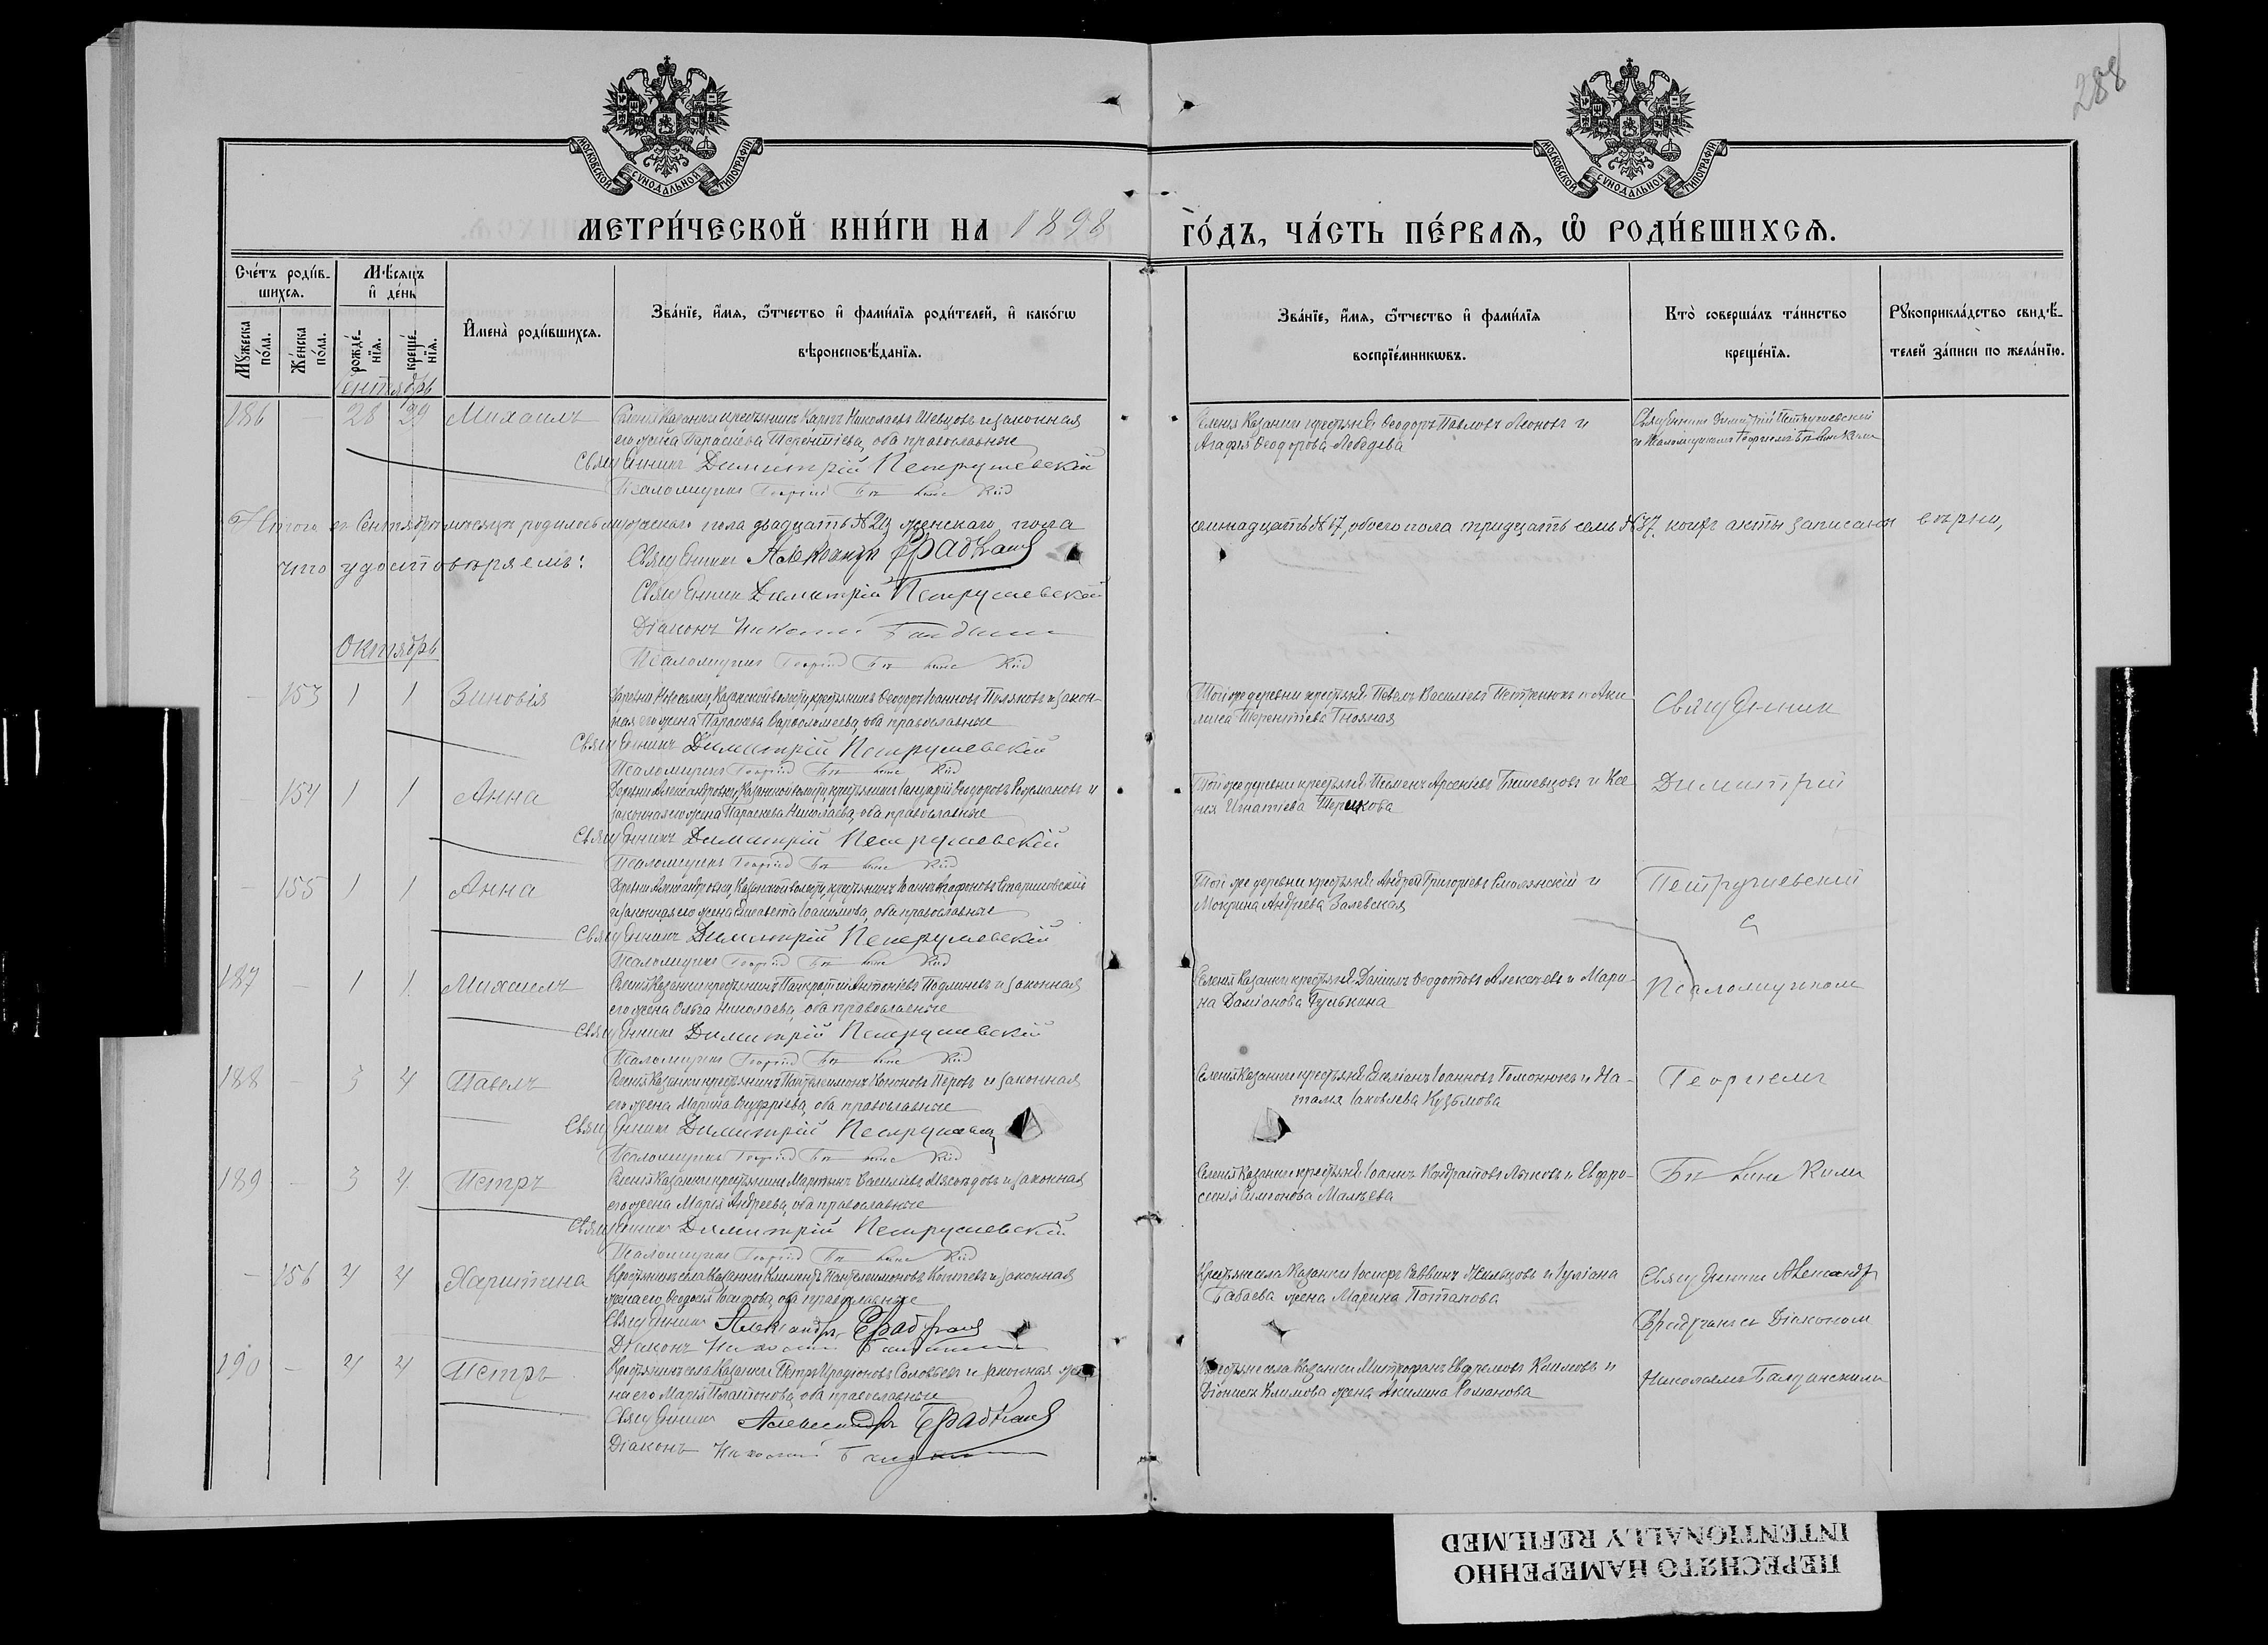 288
МОСКОВСКОЙ СѴНОДАЛЬНОЙ ТИПОГРАФІИ
МОСКОВСКОЙ СѴНОДАЛЬНОЙ ТИПОГРАФІИ
МЕТРИ́ЧЕСКОЙ КНИ́ГИ НА 1898
ГО́ДЪ, ЧА́СТЬ ПЕ́РВАѦ, Ѡ҆ РОДИ́ВШИХСѦ.
Сче́тъ роди́в-
шихсѧ.
Мѹ́жеска по́ла.
Же́нска по́ла.
Мѣ́сѧцъ
и҆ де́нь
рожде́нїѧ.
креще́нїѧ.
И҆мена̀ роди́вшихсѧ.
Зва́нїе, и҆́мѧ, ѻ҆́тчество и҆ фами́лїѧ роди́телей, и҆ како́гѡ
вѣроисповѣ́данїѧ.
Зва́нїе, и҆́мѧ, ѻ҆́тчество и҆ фами́лїѧ
воспрїе́мникѡвъ.
Кто̀ соверша́лъ та́инство
креще́нїѧ.
Рꙋкоприкла́дство свидѣ́-
телей за́писи по жела́нїю.
Сентябрь
186 — 28 29 Михаилъ
Селенія Казанки крестьянинъ Карпъ Николаевъ Шевцовъ и законная
его жена Параскева Терентіева, оба православные
Священникъ Димитрій Петрушевскій
Псаломщикъ Георгій
Селенія Казанки крестьяне Ѳеодоръ Павловъ Леоновъ и
Агафія Ѳеодорова Лебедева
Священникъ Димитрій Петрушевскій
и Псаломщикомъ Георгіемъ
Итого въ Сентябрѣ мѣсяцѣ родилось мужескаго пола двадцать № 20, женскаго пола
семнадцать № 17, обоего пола тридцать семь № 37, коихъ акты записаны вѣрно,
что удостовѣряемъ:
Священникъ Александръ
Священникъ Димитрій Петрушевскій
Діаконъ Николай
Псаломщикъ Георгій
Октябрь
— 153 1 1 Зиновія
Казанской волости, крестьянинъ Ѳеодоръ Іоанновъ Поляковъ и закон-
ная его жена Параскева Варѳоломеева, оба православные
Священникъ Димитрій Петрушевскій
Псаломщикъ Георгій
Той же деревни крестьяне Павелъ Василіевъ Петренюкъ и Аки-
лина Терентіева Гнозная
Священникъ
154 1 1 Анна
Деревни Александровки, Казанской волости, крестьянинъ Ѳеодоровъ и
законная его жена Параскева Николаева, оба православные
Священникъ Димитрій Петрушевскій
Псаломщикъ Георгій
Той же деревни крестьяне Пименъ Арсеніевъ и Ксе-
нія Игнатіева
Димитрій
— 155 1 1 Анна
Деревни Александровки, Казанской волости, крестьянинъ Іоаннъ Агафоновъ
и законная его жена Елисавета Іоакимова, оба православные
Священникъ Димитрій Петрушевскій
Псаломщикъ Георгій
Той же деревни крестьяне Андрей Григоріевъ Смолянскій и
Мокрина Андреева Залевская
Петрушевскій
с
187 — 1 1 Михаилъ
Селенія Казанки крестьянинъ Панкратій Антоніевъ Подлиневъ и законная
его жена Ольга Николаева, оба православные
Священникъ Димитрій Петрушевскій
Псаломщикъ Георгій
Селенія Казанки крестьяне Даніилъ Ѳеодотовъ Алексѣевъ и Мари-
на Даміанова Гулькина
Псаломщикомъ
188 — 3 4 Павелъ
Селенія Казанки крестьянинъ Пантелеимонъ Кононовъ Перовъ и законная
его жена Марина Онуфріева, оба православные
Священникъ Димитрій
Псаломщикъ Георгій
Селенія Казанки крестьяне Емеліанъ Іоанновъ Гомонюкъ и На-
талія Іаковлева Кузьмова
Георгіемъ
189 — 3 4 Петръ
Селенія Казанки крестьянинъ Мартынъ Василіевъ Мясоѣдовъ и законная
его жена Марія Андреева, оба православные
Священникъ Димитрій Петрушевскій
Псаломщикъ Георгій
Селенія Казанки крестьяне Іоаннъ Кондратовъ Лыковъ и Евфро-
синія Симеонова Малѣева
— 156 4 4 Харитина
Крестьянинъ села Казанки Климентъ Пантелеимоновъ и законная
жена его Ѳеодосія Іосифова, оба православные
Священникъ Александръ
Діаконъ Николай
Крестьяне села Казанки Іосифъ Саввинъ и Іуліана
Бабаева жена Марина Потапова
Священникъ Александръ
съ Діакономъ
190 — 4 4 Петръ
Крестьянинъ села Казанки Петръ Иродіоновъ Соловьевъ и законная же-
на его Марія Платонова, оба православные
Священникъ Александръ
Діаконъ Николай
Крестьяне села Казанки Митрофанъ Евфимовъ Климовъ и
Діонисія Климова жена Акилина Романова
Николаемъ
ПЕРЕСНЯТО НАМЕРЕННО
INTENTIONALLY REFILMED